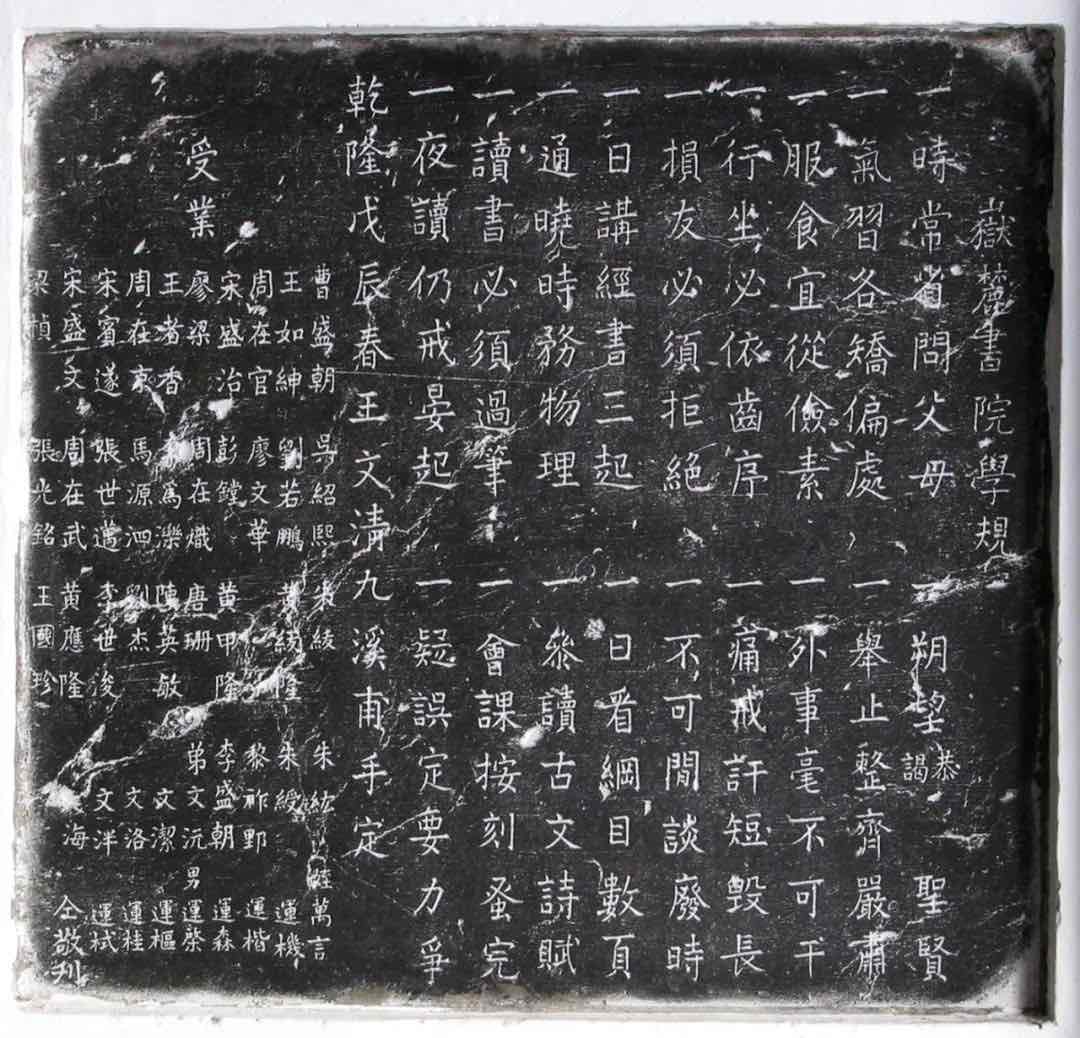 嶽麓書院學規
一時常省問父母 一朔望恭謁聖賢
一氣習各矯偏處 一舉止整齊嚴肅
一服食宜從儉素 一外事毫不可干
一行坐必依齒序 一痛戒訐短毀長
一損友必須拒絕 一不可閒談廢時
一日講經書三起 一日看綱目數頁
一通曉時務物理 一叅讀古文詩賦
一讀書必須過筆 一會課按刻蚤完
一夜讀仍戒晏起 一疑誤定要力爭
乾隆戊辰春王文清九溪甫手定
受業
曹盛朝 吳紹熙 朱綾 朱紘 萬言
王如紳 劉若鵬 隆 朱綬 運機
周在官 廖文華 黎祚野 運楷
宋盛治 彭鏜 黃甲隆 李盛朝 運森
廖梁 周在熾 唐珊 弟文沅 男運
王者香 爲濼 陳英敏 文潔 運樞
周在 馬源泗 劉杰 文洛 運桂
宋賓遂 張世邁 李世浚 文泮 運栻
宋盛文 周在武 黃應隆 海 仝敬刋
梁楨 張光銘 王國珍